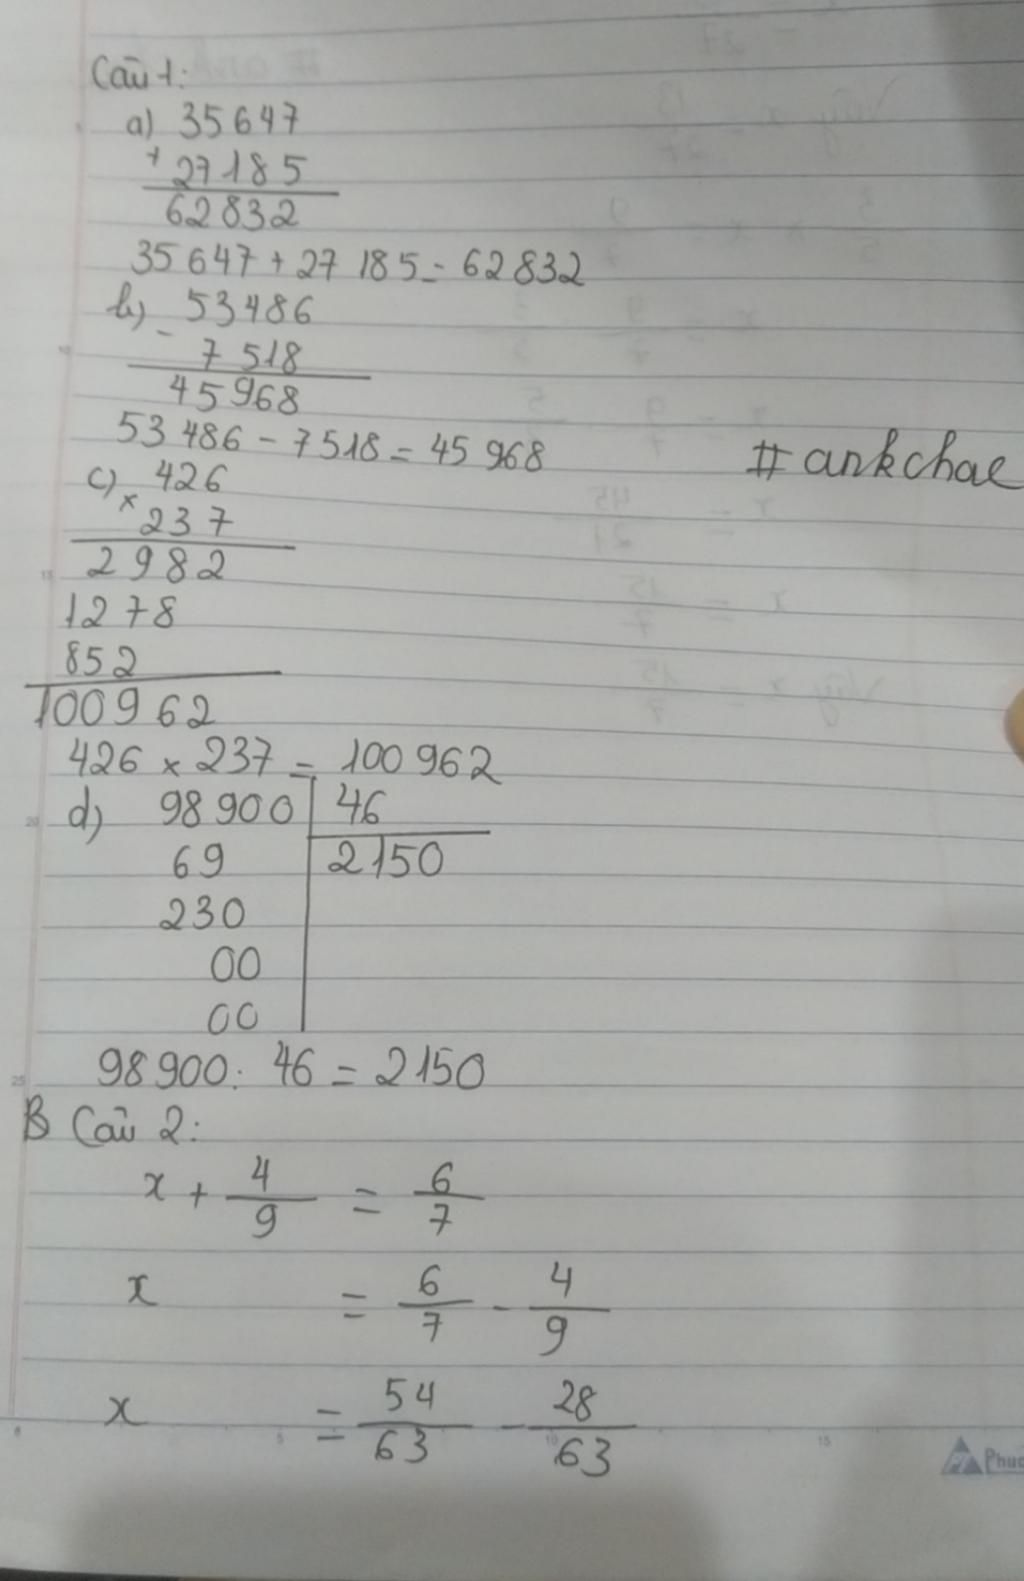 Câu 1:
a) 35647
+ 27185
62832
35647 + 27185 = 62832
b) 53486
- 7518
45968
53486 - 7518 = 45968
#ankchae
c) 426
× 237
2982
1278
852
100962
426 × 237 = 100962
d) 98900 | 46
69 | 2150
230
00
00
98900 : 46 = 2150
B Câu 2:
x + 4/9 = 6/7
x = 6/7 - 4/9
x = 54/63 - 28/63